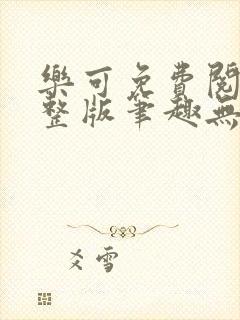 樂可免費閱
整版筆趣無
爻雪